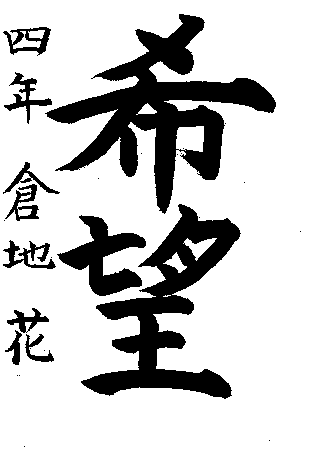 希望
四年 倉地 花